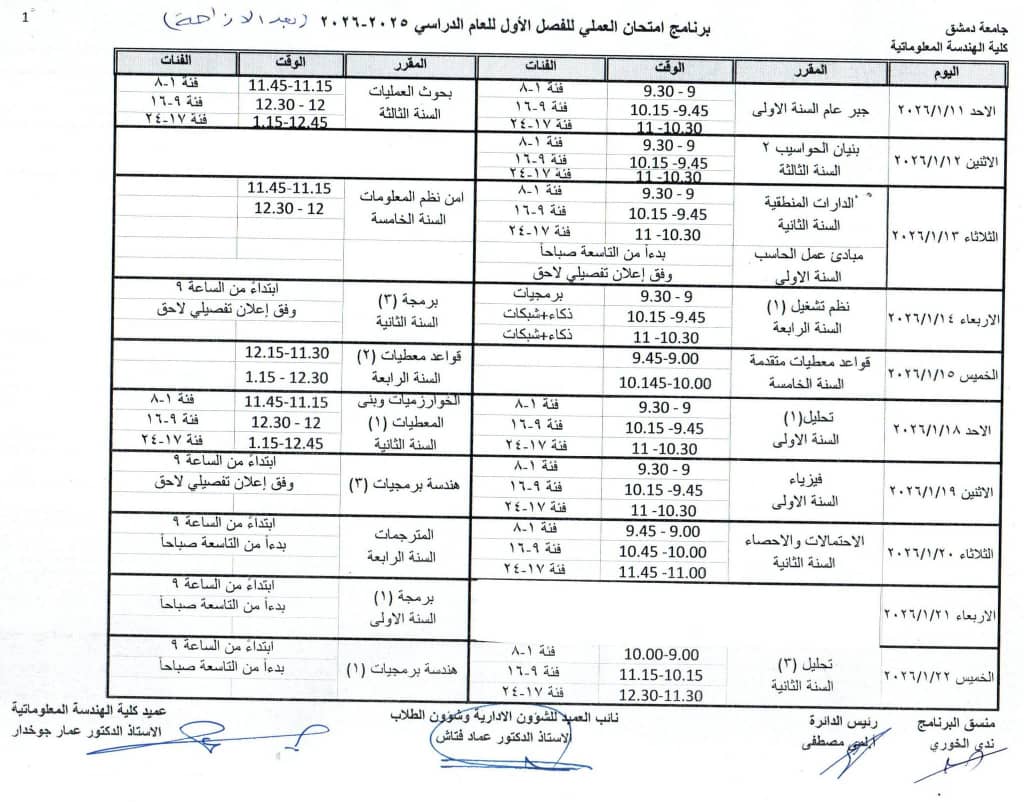 1
جامعة دمشق
كلية الهندسة المعلوماتية
برنامج امتحان العملي للفصل الأول للعام الدراسي ٢٠٢٥-٢٠٢٦ (بعد الازاحة)
اليوم المقرر الوقت الفئات المقرر الوقت الفئات
الاحد ٢٠٢٦/١/١١
جبر عام السنة الاولى
9 - 9.30 فئة ١-٨
9.45- 10.15 فئة ٩-١٦
10.30- 11 فئة ١٧-٢٤
بحوث العمليات
السنة الثالثة
11.15-11.45 فئة ١-٨
12 - 12.30 فئة ٩-١٦
12.45-1.15 فئة ١٧-٢٤
الاثنين ٢٠٢٦/١/١٢
بنيان الحواسيب ٢
السنة الثالثة
9 - 9.30 فئة ١-٨
9.45- 10.15 فئة ٩-١٦
10.30- 11 فئة ١٧-٢٤
الثلاثاء ٢٠٢٦/١/١٣
الدارات المنطقية
السنة الثانية
9 - 9.30 فئة ١-٨
9.45- 10.15 فئة ٩-١٦
10.30- 11 فئة ١٧-٢٤
مبادئ عمل الحاسب
السنة الاولى
بدءاً من التاسعة صباحاً
وفق إعلان تفصيلي لاحق
امن نظم المعلومات
السنة الخامسة
11.15-11.45
12 - 12.30
الاربعاء ٢٠٢٦/١/١٤
نظم تشغيل (١)
السنة الرابعة
9 - 9.30 برمجيات
9.45- 10.15 ذكاء+شبكات
10.30- 11 ذكاء+شبكات
برمجة (٣)
السنة الثانية
ابتداءً من الساعة ٩
وفق إعلان تفصيلي لاحق
الخميس ٢٠٢٦/١/١٥
قواعد معطيات متقدمة
السنة الخامسة
9.00-9.45
10.00-10.145
قواعد معطيات (٢)
السنة الرابعة
11.30-12.15
12.30 - 1.15
الاحد ٢٠٢٦/١/١٨
تحليل(١)
السنة الاولى
9 - 9.30 فئة ١-٨
9.45- 10.15 فئة ٩-١٦
10.30- 11 فئة ١٧-٢٤
الخوارزميات وبنى
المعطيات (١)
السنة الثانية
11.15-11.45 فئة ١-٨
12 - 12.30 فئة ٩-١٦
12.45-1.15 فئة ١٧-٢٤
الاثنين ٢٠٢٦/١/١٩
فيزياء
السنة الاولى
9 - 9.30 فئة ١-٨
9.45- 10.15 فئة ٩-١٦
10.30- 11 فئة ١٧-٢٤
هندسة برمجيات (٣)
ابتداءً من الساعة ٩
وفق إعلان تفصيلي لاحق
الثلاثاء ٢٠٢٦/١/٢٠
الاحتمالات والاحصاء
السنة الثانية
9.00 - 9.45 فئة ١-٨
10.00-10.45 فئة ٩-١٦
11.00-11.45 فئة ١٧-٢٤
المترجمات
السنة الرابعة
ابتداءً من الساعة ٩
بدءاً من التاسعة صباحاً
الاربعاء ٢٠٢٦/١/٢١
برمجة (١)
السنة الاولى
ابتداءً من الساعة ٩
بدءاً من التاسعة صباحاً
الخميس ٢٠٢٦/١/٢٢
تحليل (٣)
السنة الثانية
9.00-10.00 فئة ١-٨
10.15-11.15 فئة ٩-١٦
11.30-12.30 فئة ١٧-٢٤
هندسة برمجيات (١)
ابتداءً من الساعة ٩
بدءاً من التاسعة صباحاً
منسق البرنامج
ندى الخوري
رئيس الدائرة
مصطفى
نائب العميد للشؤون الادارية وشؤون الطلاب
الاستاذ الدكتور عماد فتاش
عميد كلية الهندسة المعلوماتية
الاستاذ الدكتور عمار جوخدار